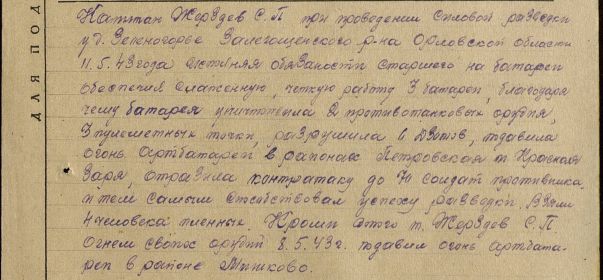 ДЛЯ ПОД
Капитан Жерздев С.П при проведении силовой разведки
у д. Зеленогорье Залегощенского р-на Орловской области
11.5.43 года исполняя обязаности старшего на батареи
обеспечил слаженную, четкую работу 3 батареи, благодаря
чему батарея уничтожила 2 противотанковых орудия,
3 пулеметных точки, разрушила 6 ДЗОТов, подавила
огонь Артбатарей в районах Петровская и Красная
Заря, отразила контратаку до 70 солдат противника,
и тем самым способствовал успеху разведки, взяли
4 человека пленных Кроми этого т. Жерздев С.П.
Огнем своих орудий 8.5.43г. подавил огонь артбата-
реи в районе Мишково.